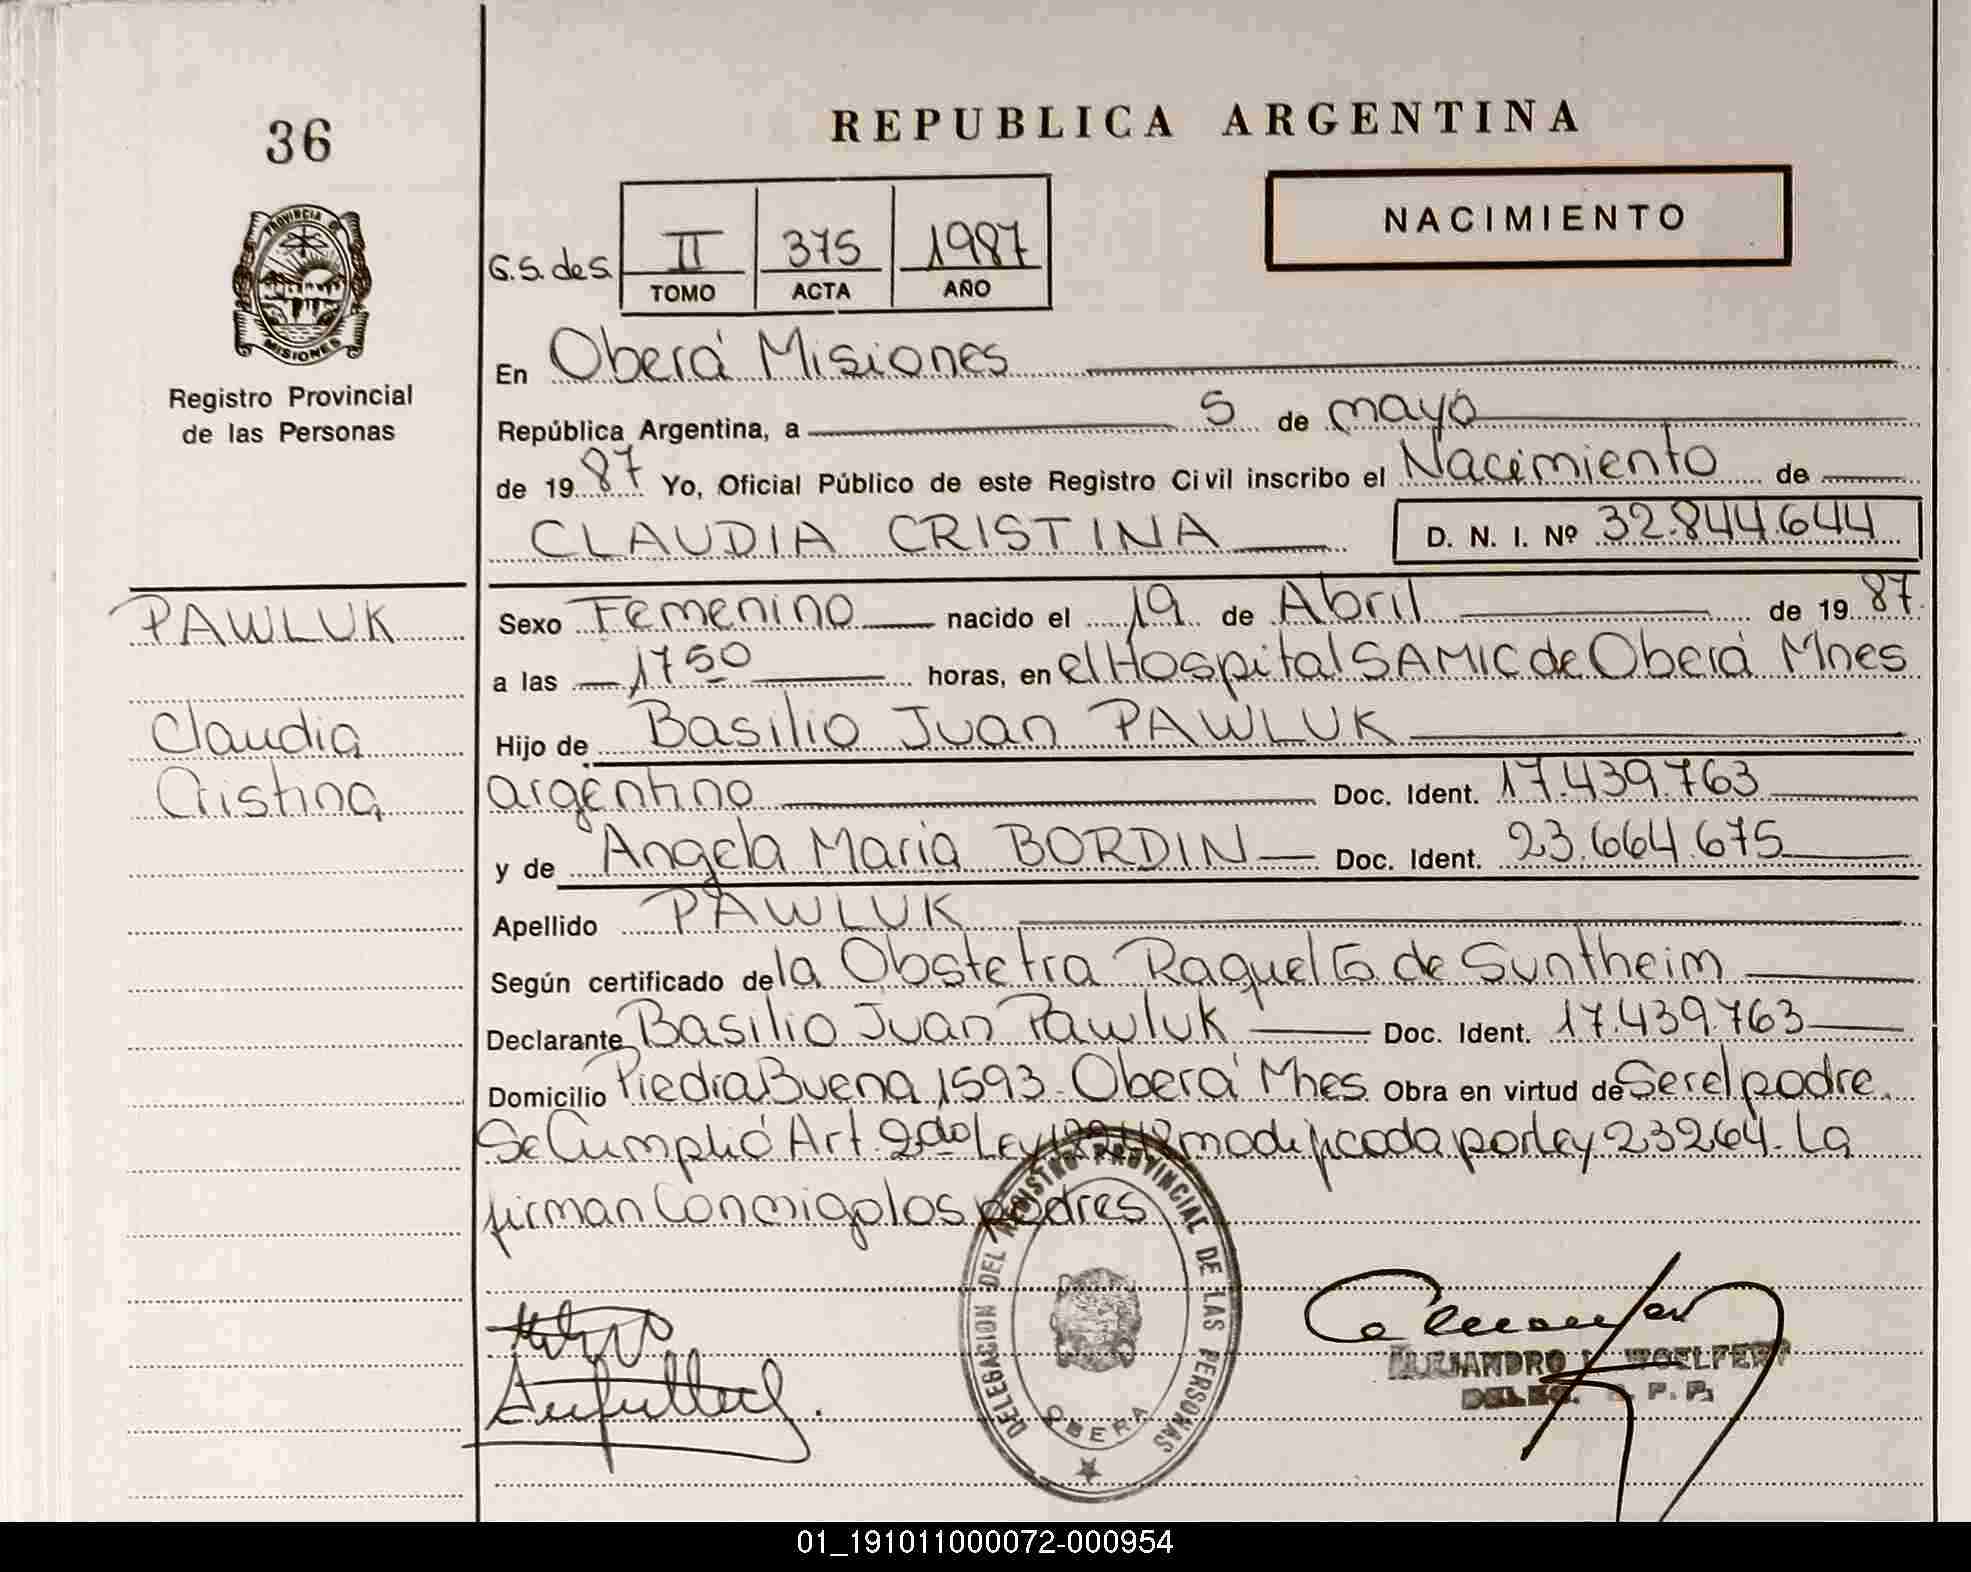 REPUBLICA ARGENTINA
36
NACIMIENTO
PROVINCIA
MISIONES
G.S. de S. II 375 1987
TOMO ACTA AÑO
Registro Provincial
de las Personas
En Oberá Misiones
República Argentina, a 5 de mayo
de 1987 Yo, Oficial Público de este Registro Civil inscribo el Nacimiento de
CLAUDIA CRISTINA D. N. I. Nº 32.844.644
PAWLUK
Claudia
Cristina
Sexo Femenino nacido el 19 de Abril de 1987
a las 17 50 horas, en el Hospital SAMIC de Oberá Mnes
Hijo de Basilio Juan PAWLUK
argentino Doc. Ident. 17.439.763
y de Angela Maria BORDIN Doc. Ident. 23.664.675
Apellido PAWLUK
Según certificado de la Obstetra Raquel G. de Suntheim
Declarante Basilio Juan Pawluk Doc. Ident. 17.439.763
Domicilio Piedra Buena 1593 - Oberá Mnes Obra en virtud de Ser el padre.
Se Cumplió Art. 2do Ley modificada por ley 23264. La
firman Conmigo los padres
DELEGACION DEL REGISTRO PROVINCIAL DE LAS PERSONAS
OBERA
ALEJANDRO WOELFERT
DELEG. R. P. P.
01_191011000072-000954